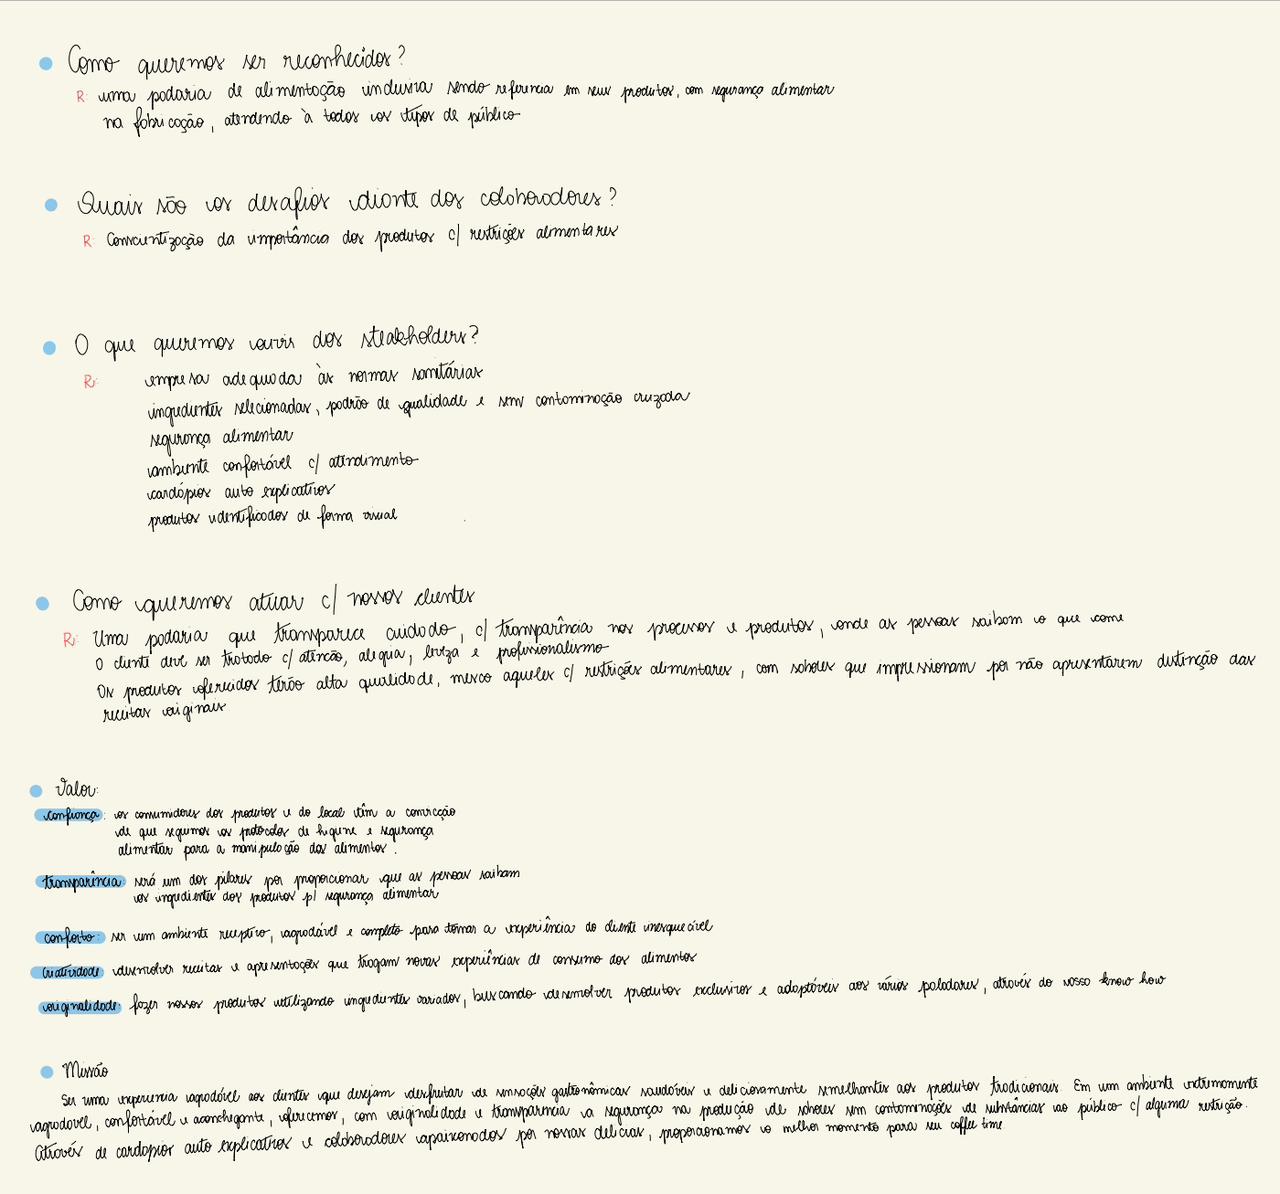 Como queremos ser reconhecidos?
R: uma padaria de alimentação inclusiva sendo referencia em seus produtos, com segurança alimentar
na fabricação, atendendo à todos os tipos de público
Quais são os desafios diante dos colaboradores?
R: Conscientização da importância dos produtos c/ restrições alimentares
O que queremos ouvir dos steakholders?
R: empresa adequada às normas sanitárias
ingredientes selecionadas, padrão de qualidade e sem contaminação cruzada
segurança alimentar
ambiente confortável c/ atendimento
cardápios auto explicativos
produtos identificados de forma visual
Como queremos atuar c/ nossos clientes
R: Uma padaria que transparece cuidado, c/ transparência nos processos e produtos, onde as pessoas saibam o que come
O cliente deve ser tratado c/ atencão, alegria, leveza e profissionalismo
Os produtos oferecidos terão alta qualidade, mesco aqueles c/ restrições alimentares, com sabores que impressionam por não apresentarem distinção das
receitas originais
Valor:
confiança: os consumidores dos produtos e do local têm a convicção
de que seguimos os protocolos de higiene e segurança
alimentar para a manipulação dos alimentos.
transparência será um dos pilares por proporcionar que as pessoas saibam
os ingredientes dos produtos p/ segurança alimentar
conforto: ser um ambiente receptivo, agradável e completo para tornar a experiência do cliente inesquecível
criatividade desenvolver receitas e apresentações que tragam novas experiências de consumo dos alimentos
originalidade: fazer nossos produtos utilizando ingredientes variados, buscando desenvolver produtos exclusivos e adaptáveis aos vários paladares, através do nosso know how
Missão
Ser uma experiencia agradável aos clientes que desejam desfrutar de sensações gastronômicas saudáveis e deliciosamente semelhantes aos produtos tradicionais. Em um ambiente extremamente
agradável, confortável e aconchegante, oferecemos, com originalidade e transparência a segurança na produção de sabores sem contaminações de substâncias ao público c/ alguma restrição.
Através de cardápios auto explicativos e colaboradores apaixonados por nossas delícias, proporcionamos o melhor momento para seu coffee time.